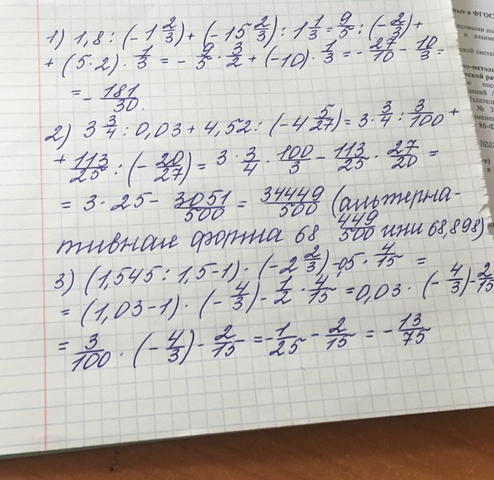 1) 1,8 : (-1 2/3) + (-15 2/3) : 1 1/3 = 9/5 : (-2/3) +
+ (5·2) · 1/3 = - 9/5 · 3/2 + (-10) · 1/3 = - 27/10 - 10/3 =
= - 181/30.
2) 3 3/4 : 0,03 + 4,52 : (-4 5/27) = 3 · 3/4 : 3/100 +
+ 113/25 : (- 20/27) = 3 · 3/4 · 100/3 - 113/25 · 27/20 =
= 3 · 25 - 3051/500 = 34449/500 (альтерна-
тивная форма 68 449/500 или 68,898)
3) (1,545 : 1,5-1) · (-2 2/3) - 0,5 · 4/15 =
= (1,03-1) · (- 4/3) - 1/2 · 4/15 = 0,03 · (- 4/3) - 2/15
= 3/100 · (- 4/3) - 2/15 = - 1/25 - 2/15 = - 13/75